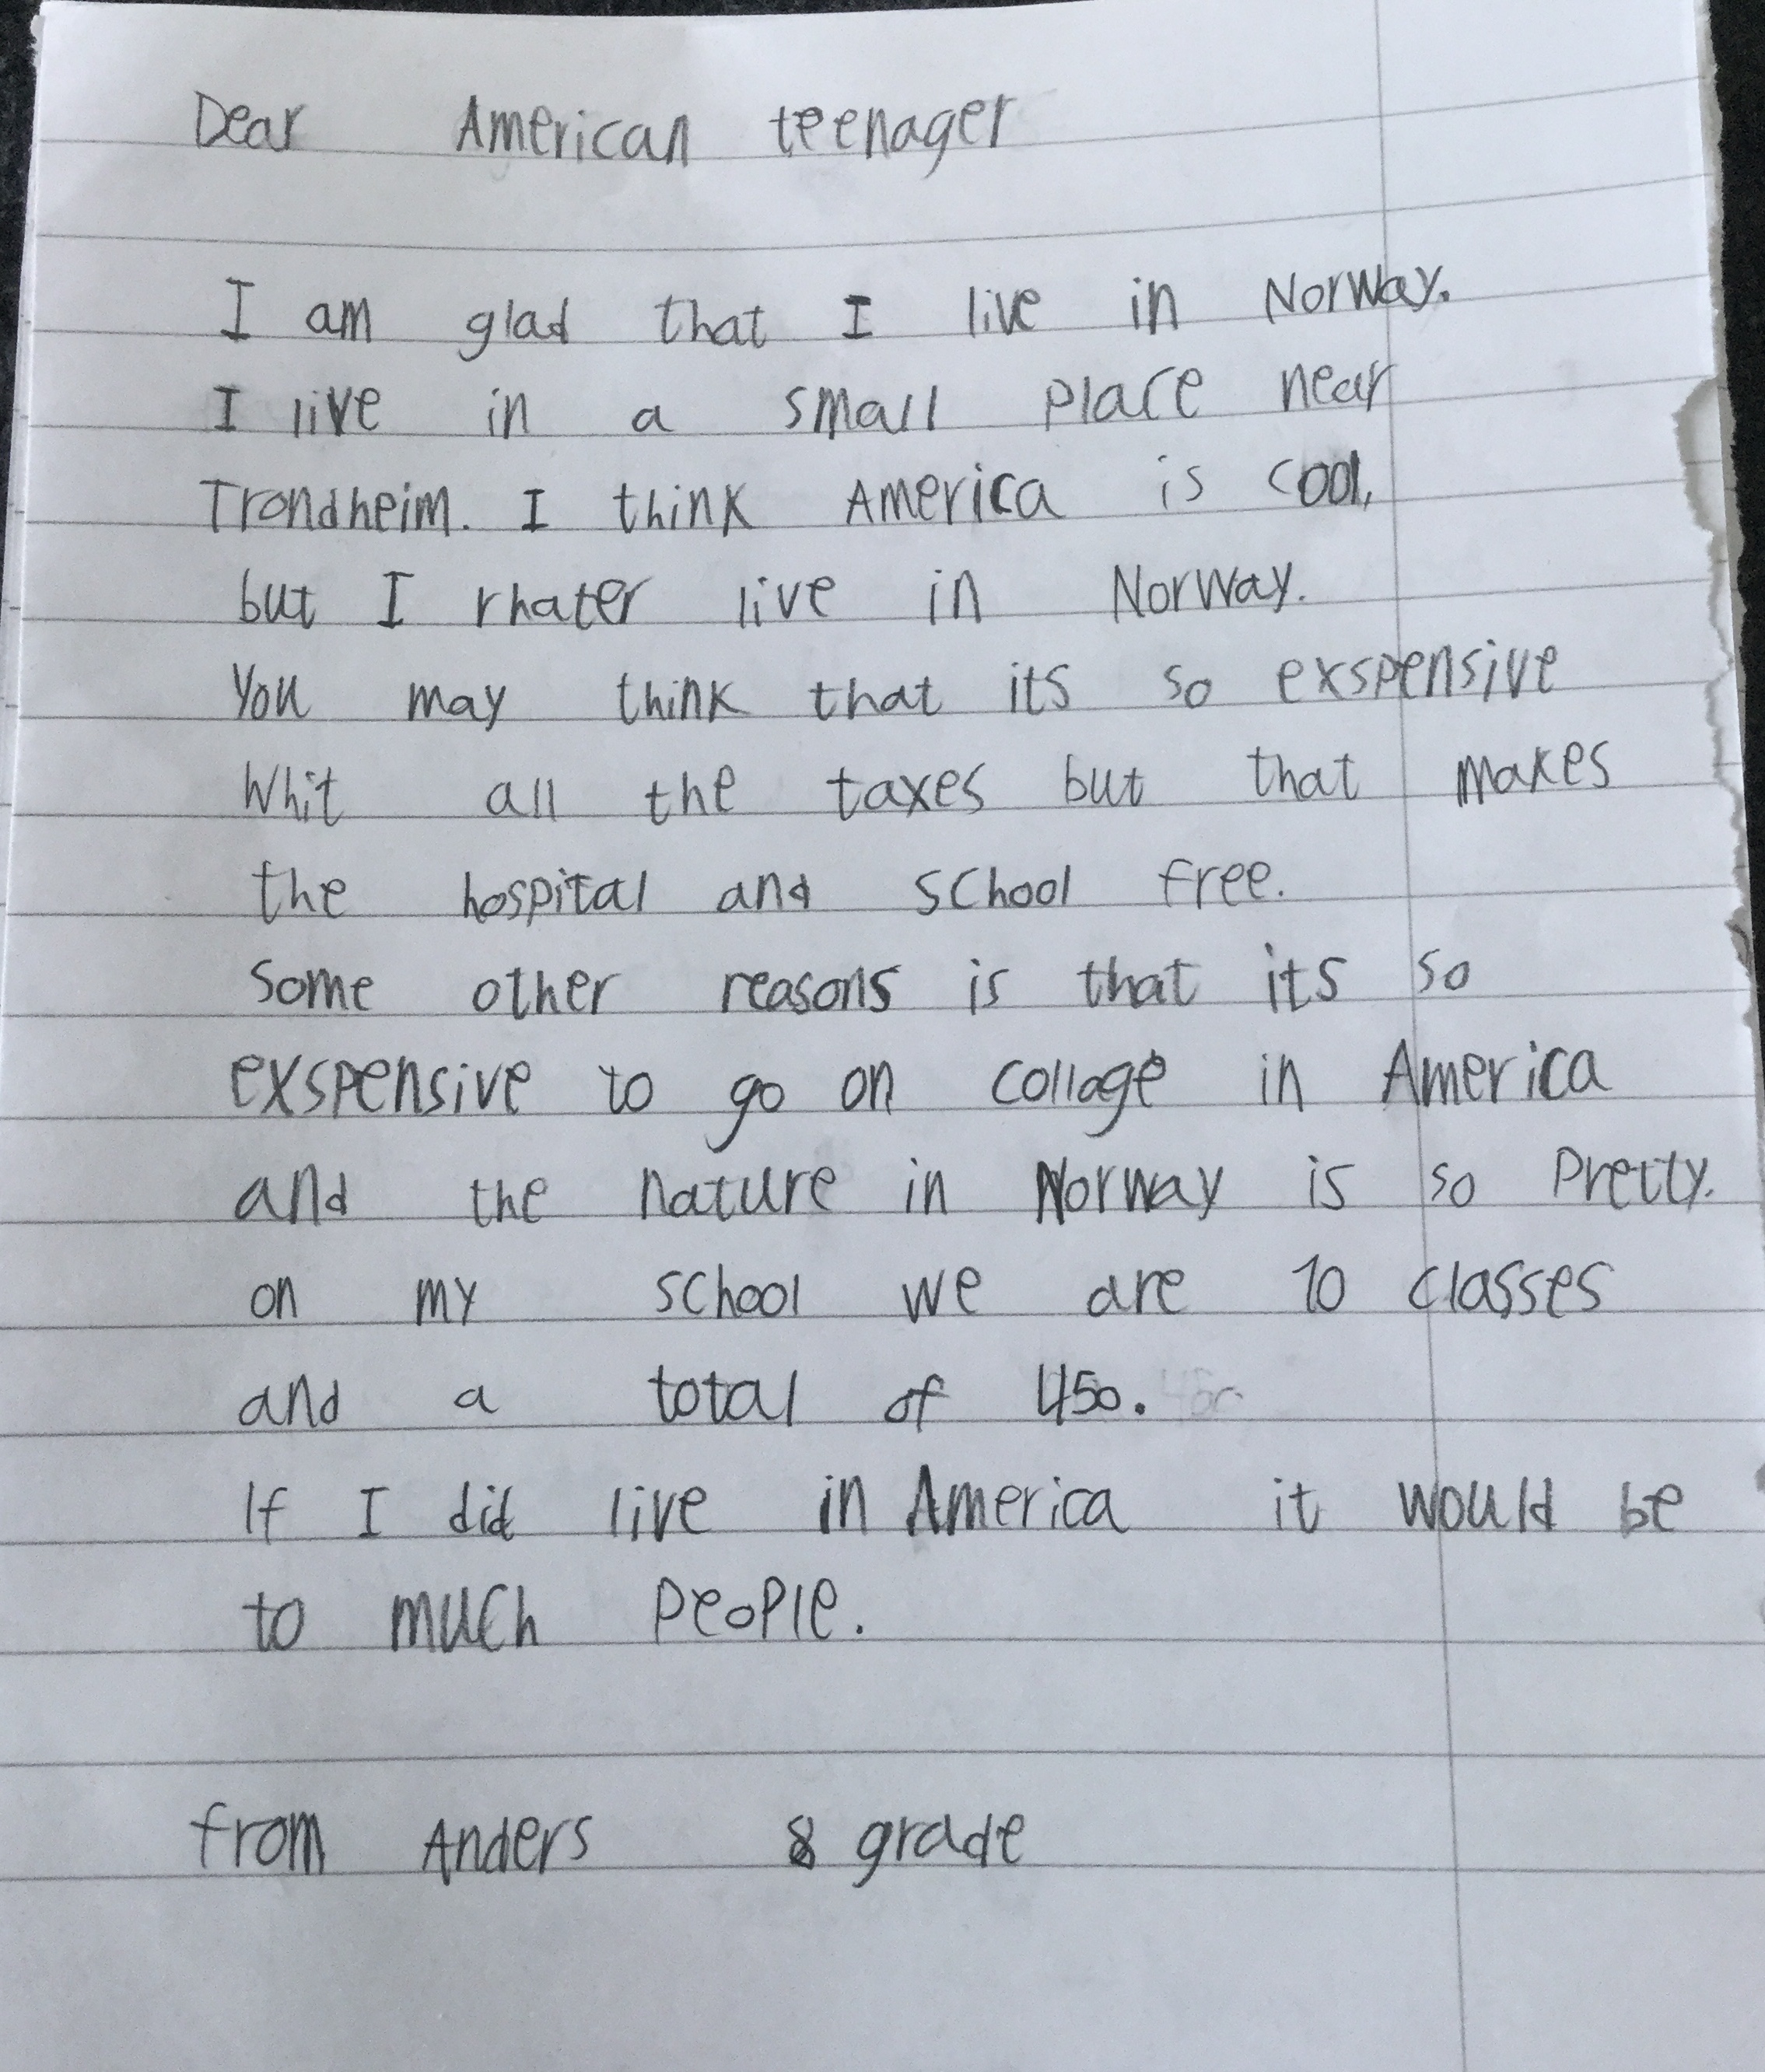 Dear American teenager
I am glad that I live in Norway.
I live in a small place near
Trondheim. I think America is cool,
but I rhater live in Norway.
You may think that its so exspensive
Whit all the taxes but that makes
the hospital and school free.
Some other reasons is that its so
exspensive to go on collage in America
and the nature in Norway is so Pretty.
on my school we are 10 classes
and a total of 450.
If I did live in America it would be
to much people.
from Anders 8 grade